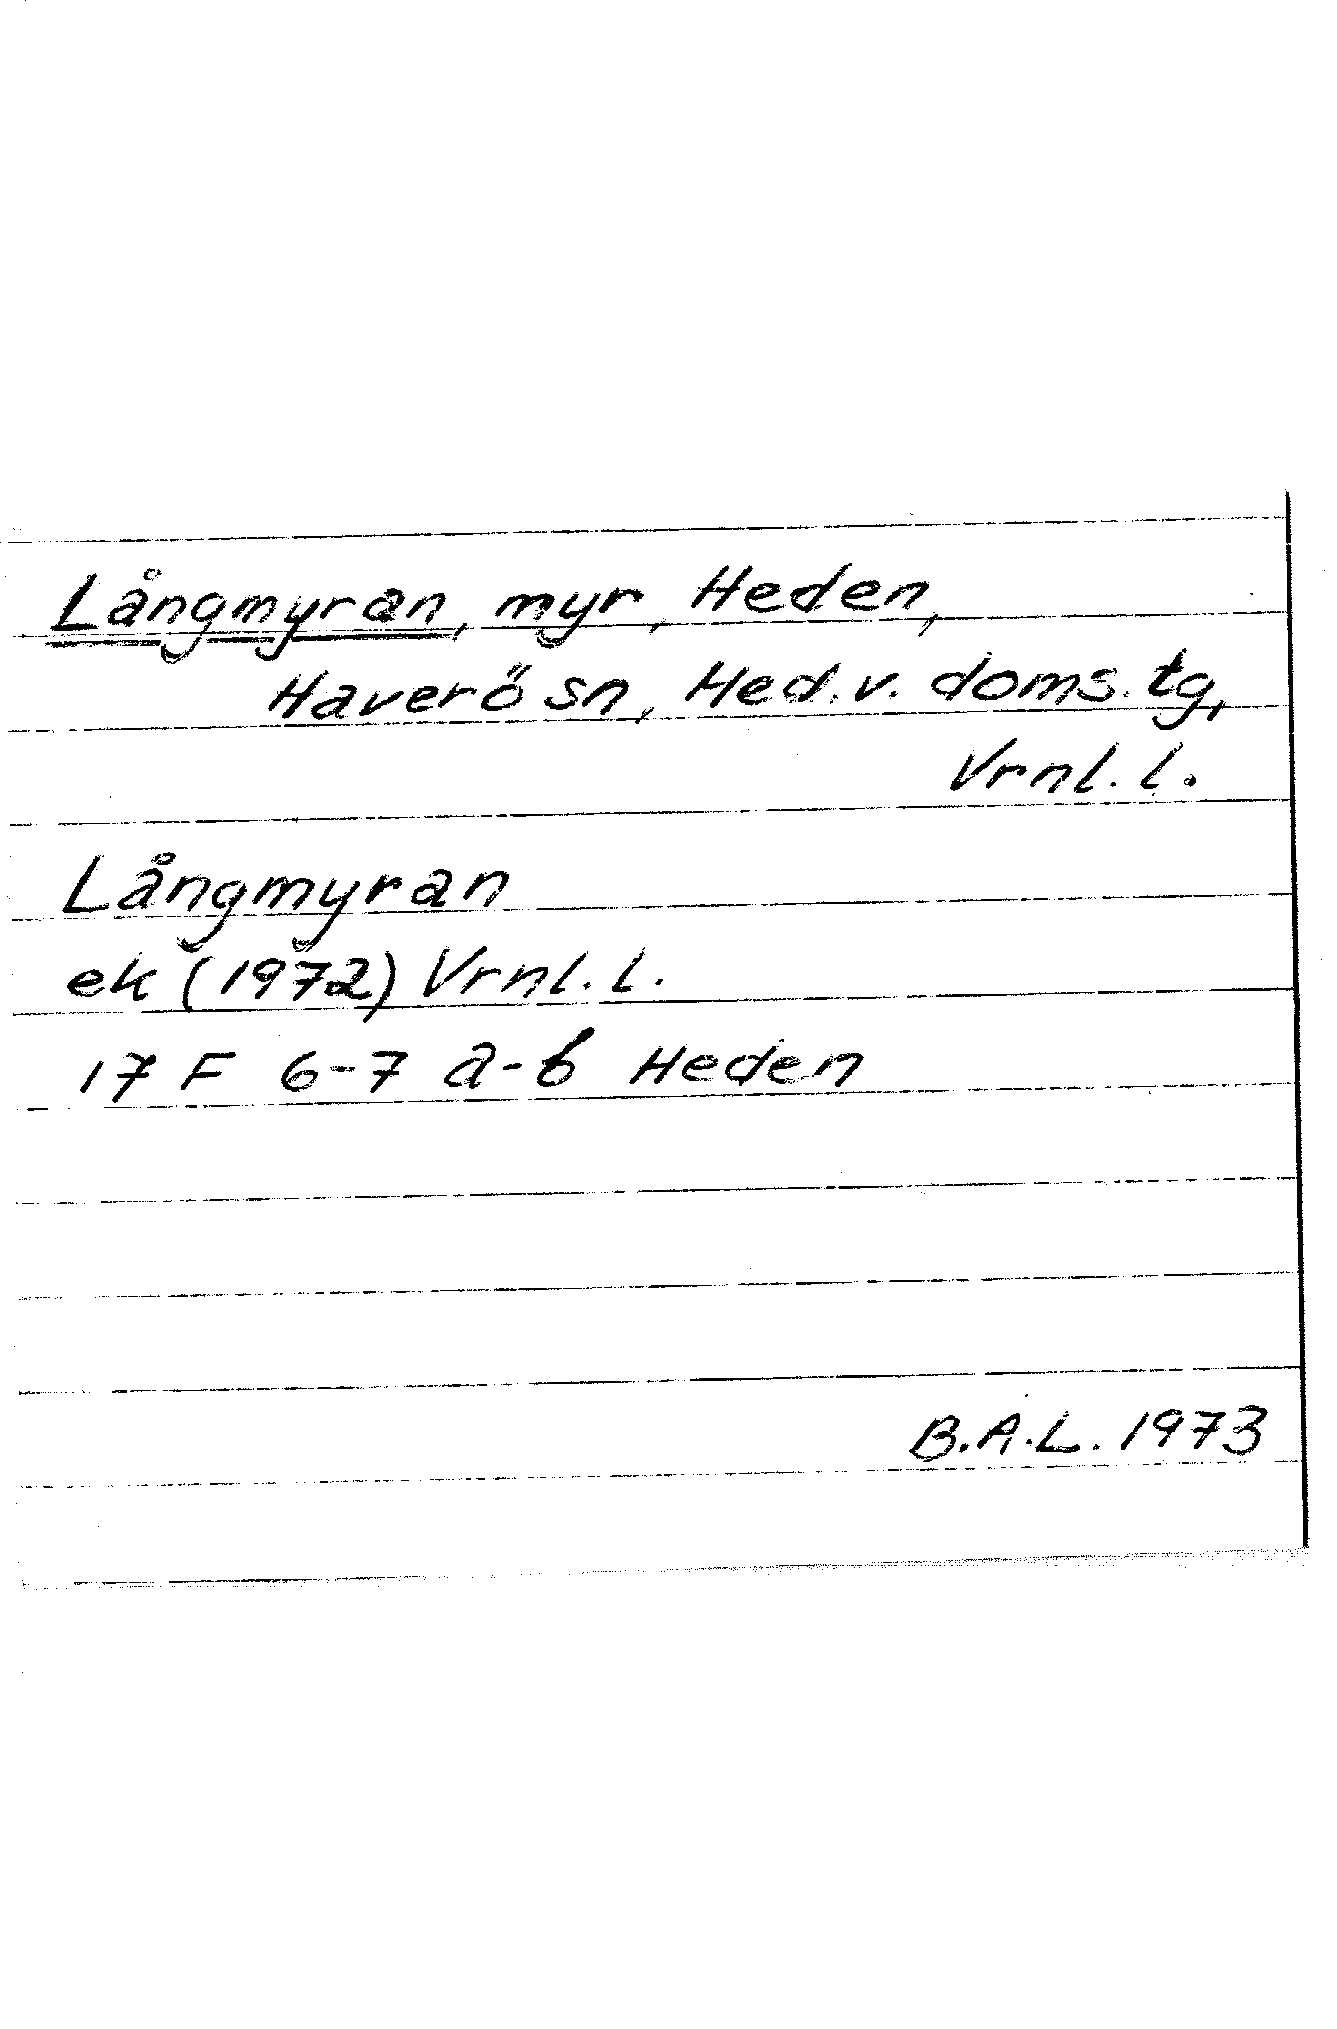 Långmyran, myr, Heden,
Haverö sn, Med. v. doms. tg,
Vrnl. l.
Långmyran
ek (1972) Vrnl. l.
17 F 6-7 a-b Heden
B.A.L. 1973